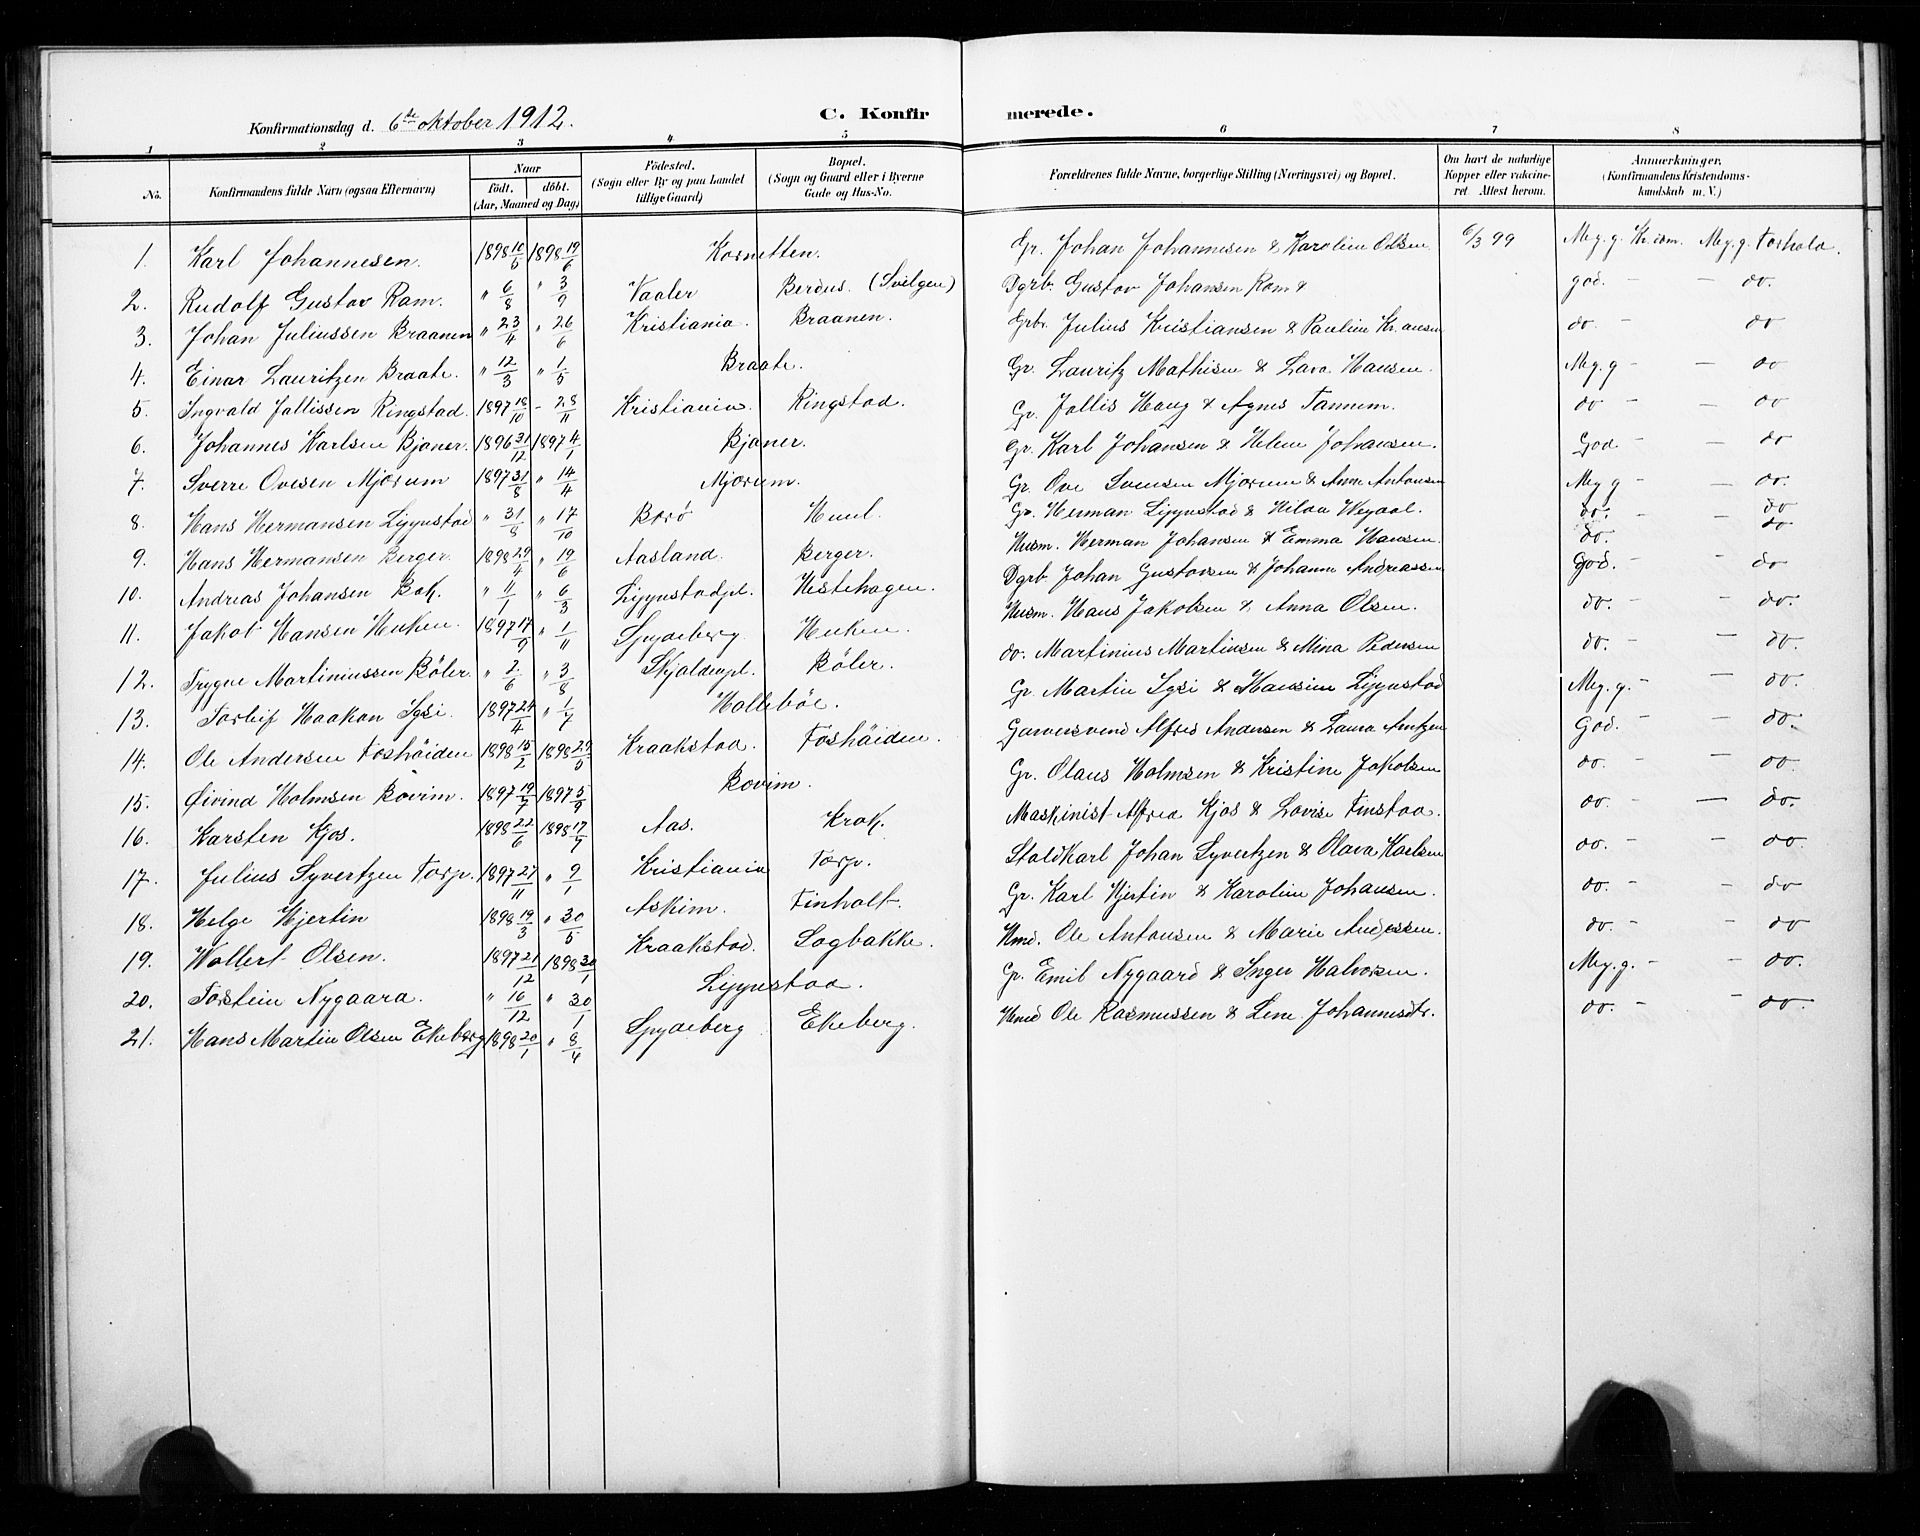 Konfirmationsdag d. 6te oktober 1912. C. Konfirmerede.
1 2 3 4 5 6 7 8
No. Konfirmandens fulde Navn (ogsaa Efternavn) Naar födt. döbt. (Aar, Maaned og Dag) Födested. (Sogn eller By og paa Landet tillige Gaard) Bopæl. (Sogn og Gaard eller i Byerne Gade og Hus-No. Forældrenes fulde Navne, borgerlige Stilling (Næringsvei) og Bopæl. Om havt de naturlige Kopper eller vakcineret Attest herom. Anmærkninger. (Konfirmandens Kristendomskundskab m. V.)
1. Karl Johannesen. 1898 10/5 1898 19/6 Kornetten. Gr. Johan Johannesen & Karoline Olsen 6/3 99 Meg. g. Kr.dom. Meg. g. Forhold.
2. Rudolf Gustav Ram. " 6/8 " 3/9 Vaaler Berdus. (Svilgen) Dgrb. Gustav Johansen Ram & god. - do.
3. Johan Juliussen Braanen " 23/4 " 26/6 Kristiania. Braanen. Grbr. Julius Kristiansen & Pauline Kr.ansen do - do
4. Einar Lauritzen Braate. " 12/3 " 1/5 Braate. Gr. Lauritz Mathisen & Lava Hansen. Meg. g - - do
5. Ingvald Jallissen Ringstad. 1897 18/10 - 28/11 Kristiania. Ringstad. Gr. Jallis Haug & Agnes Tannum. do - - do
6. Johannes Karlsen Bjoner. 1896 31/12 1897 4/1 Bjoner. Gr. Karl Johansen & Helene Johansen. God. - - do
7. Sverre Ovesen Mjorum 1897 31/8 " 14/4 Mjorum. Gr. Ove Svensen Mjorum & Anne Antonsen Meg g - - do.
8. Hans Hermansen Lippestad " 31/8 " 17/10 Borö Huul. Gr. Herman Lippestad & Hilda do. - - do
9. Hans Hermansen Berger. 1898 29/4 " 19/6 Aasland. Berger. Husm. Herman Johansen & Emma Hansen. do. do
10. Andreas Johansen Bak. " 11/1 " 6/3 Lippestadpl. Hestehagen. Dgrb. Johan Gustavsen & Johanne Andreassen God. - - do
11. Jakob Hansen Huken. 1897 17/9 " 1/11 Spydeberg. Huken. Husm. Hans Jakobsen & Anna Olsen. do. - - do.
12. Trygve Martiniussen Böler. " 2/6 " 3/8 Skjoldenpl. Böler. do. Martinius Martinsen & Mina Pedersen do. - - do.
13. Torleif Haakon Igsi. 1897 24/4 " 1/7 Holleböe. Gr. Martin Igsi & Hansine Lippestad Meg. g. - - do.
14. Ole Andersen Foshöiden 1898 15/2 1898 29/5 Kraakstad. Foshöiden. Garversvend Alfred Andersen & Laura Arntzen God. - do.
15. Øivind Holmsen Bovim. 1897 19/7 1897 5/9 Bovim. Gr. Olaus Holmsen & Kristine Jakobsen do. - - do.
16. Karsten Kjos. 1898 22/6 1898 17/7 Aas. Krok. Maskinist Alfred Kjos & Lovise Finstad. do. - - do.
17. Julius Syvertzen Torp. 1897 27/11 " 9/1 Kristiania Torp. Staldkarl Johan Syvertzen & Olava Karlsen do. - - do.
18. Helge Hjertin 1898 19/3 " 30/5 Askim. Finholt. Gr. Karl Hjertin & Karoline Johansen. do. - - do
19. Wollert Olsen. 1897 21/12 1898 30/1 Kraakstad. Sogbakke. Hmd. Ole Antonsen & Marie Andersen. do. - - do
20. Torstein Nygaard. " 16/12 " 30/1 Lippestad. Gr. Emil Nygaard & Inger Halvorsen. Meg. g. - - do.
21. Hans Martin Olsen Ekeberg 1898 20/1 " 8/4 Spydeberg Ekeberg. Hmd Ole Rasmussen & Lene Johannesdtr. do. - - do.